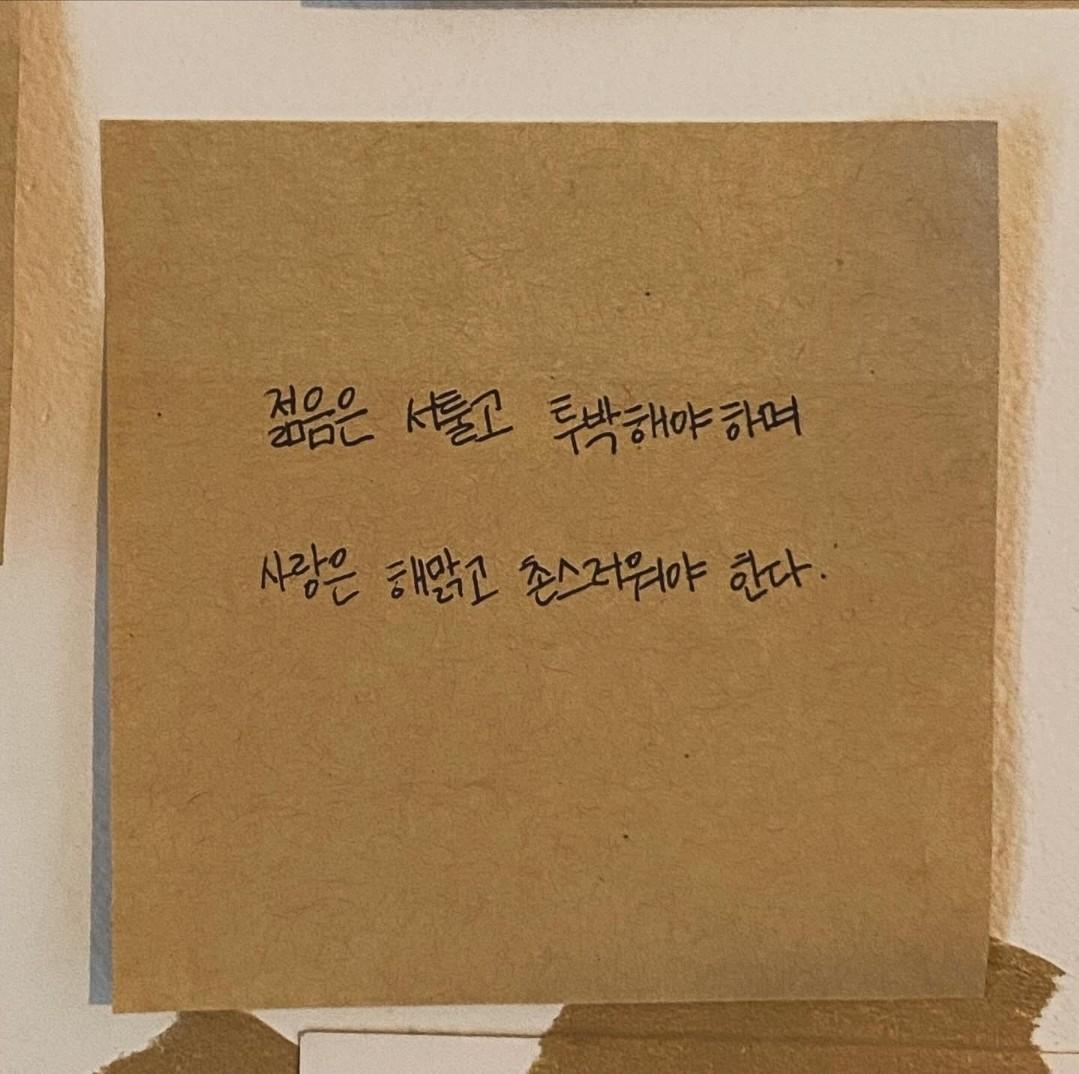 젊음은 서툴고 투박해야 하며
사랑은 해맑고 촌스러워야 한다.